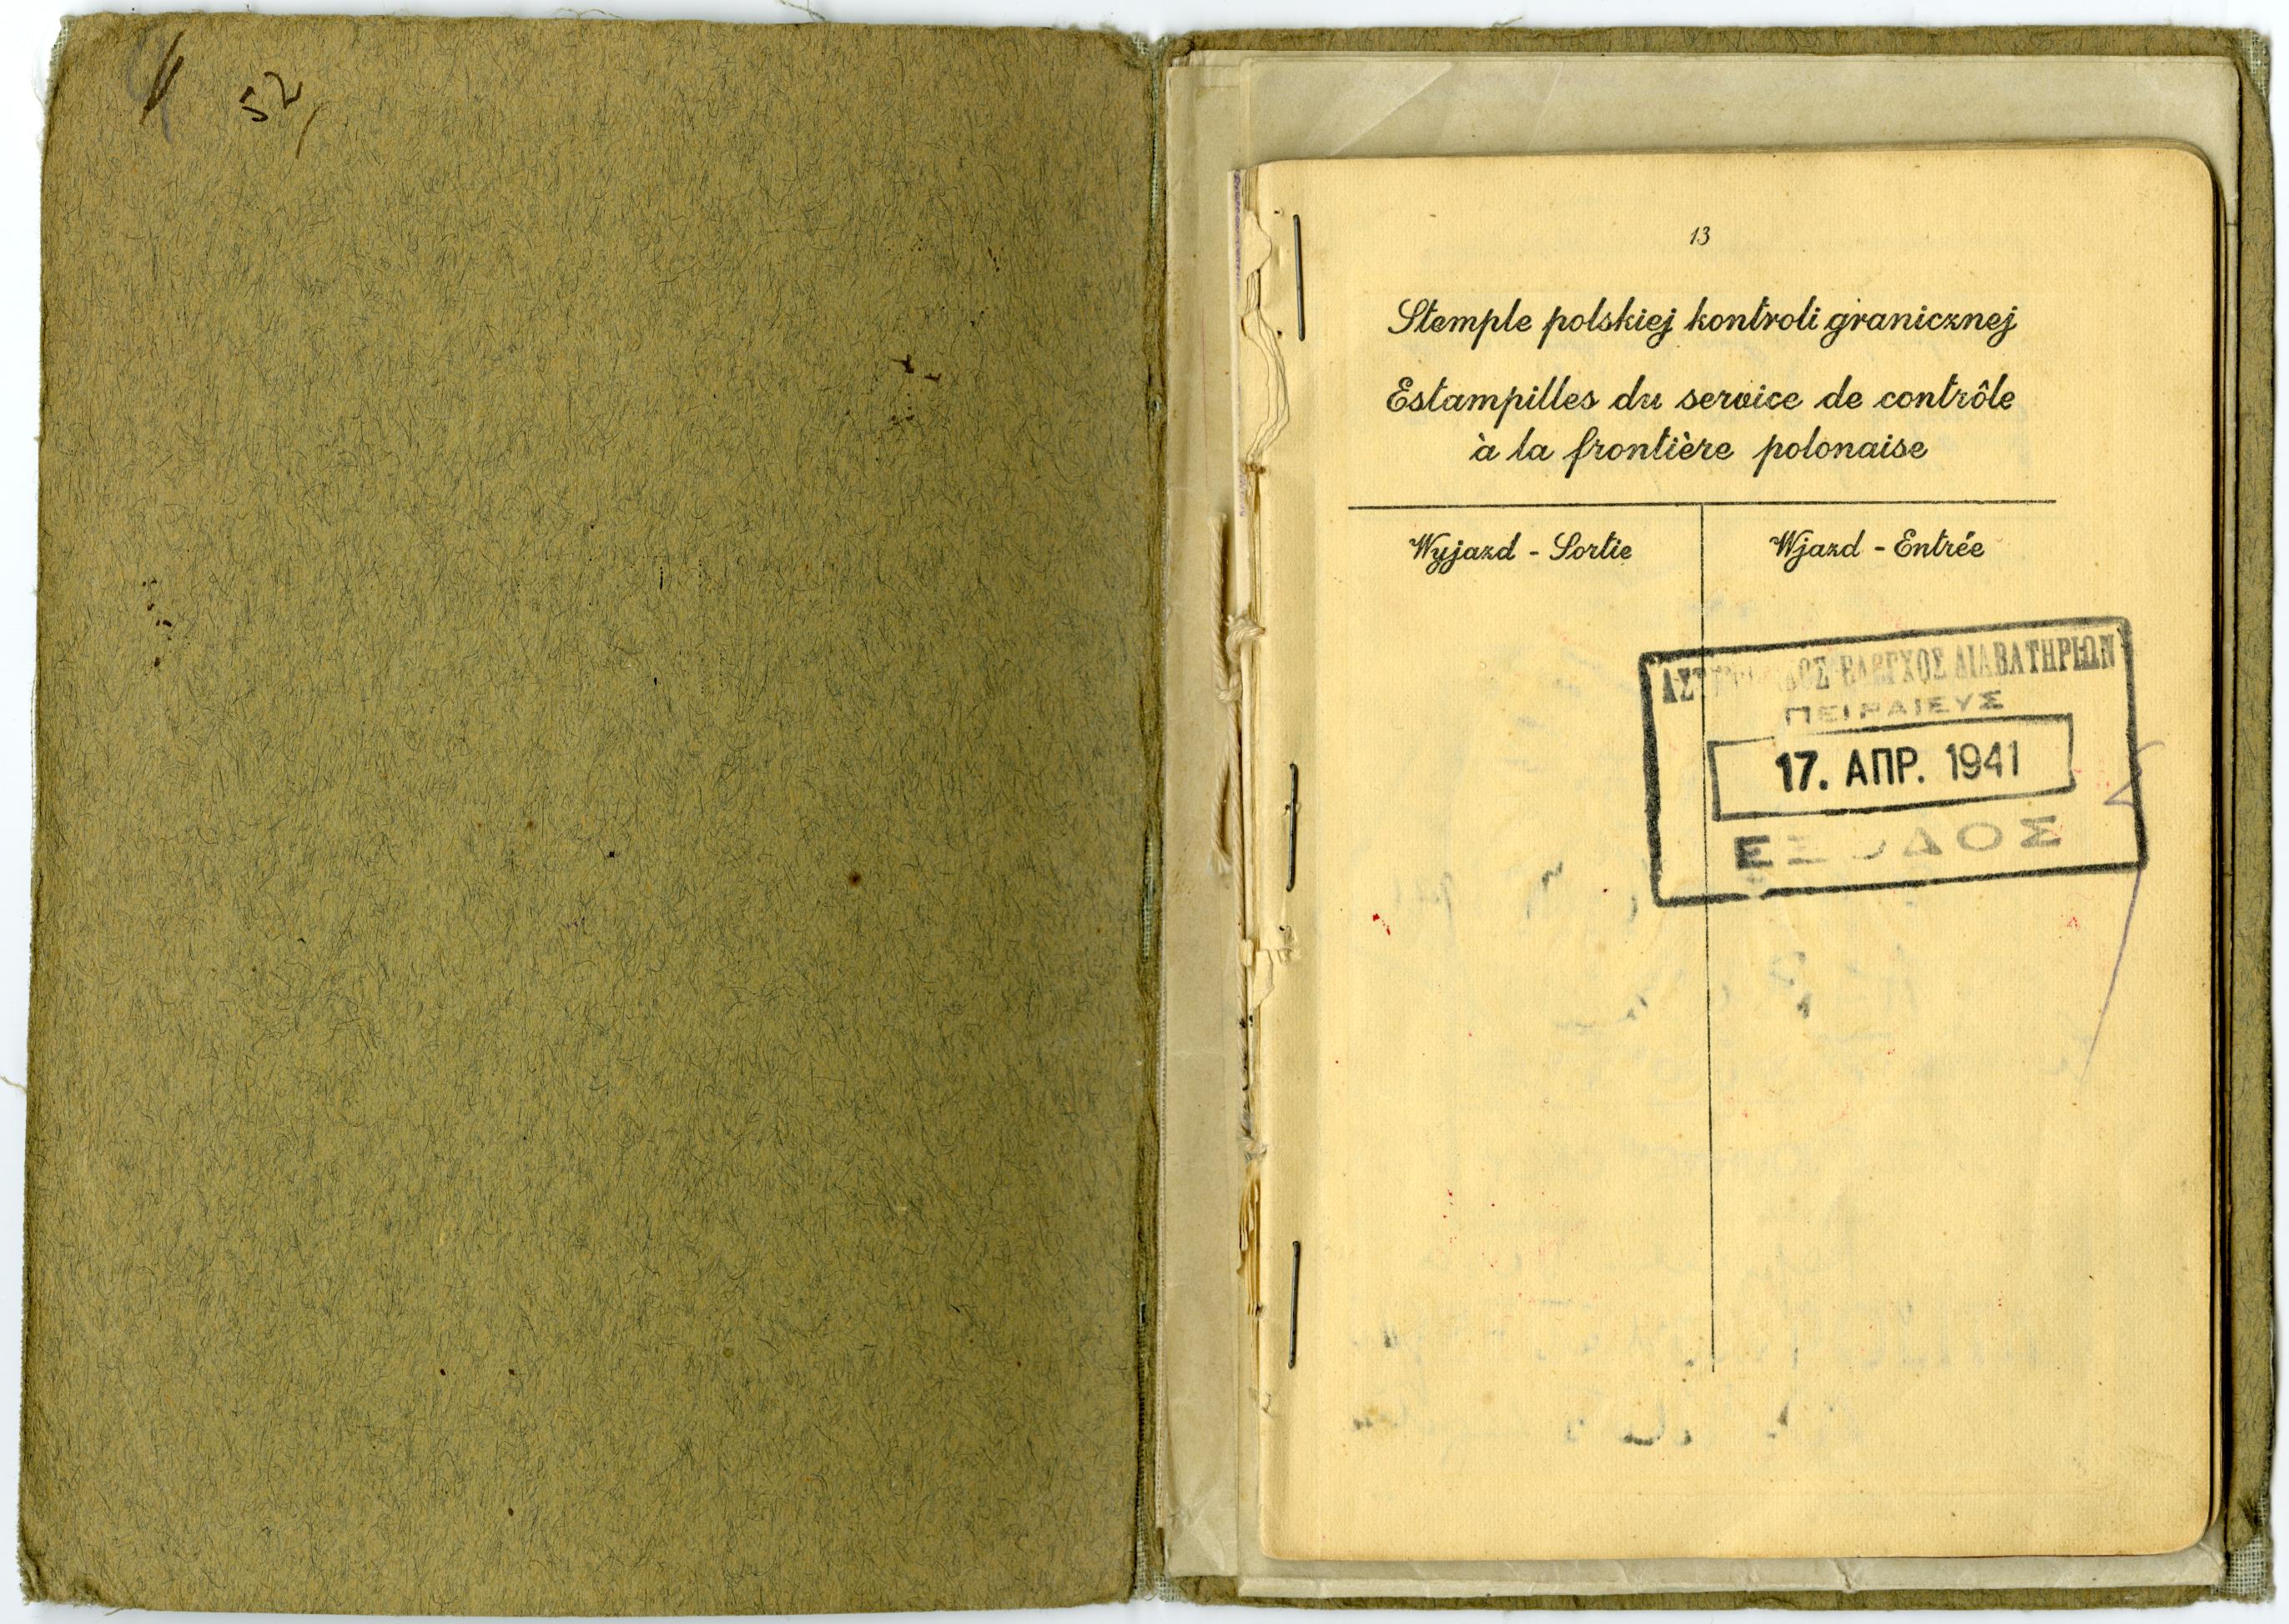 52
13
Stemple polskiej kontroli granicznej
Estampilles du service de contrôle
à la frontière polonaise
Wyjazd - Sortie
Wjazd - Entrée
ΕΛΕΓΧΟΣ ΔΙΑΒΑΤΗΡΙΩΝ
ΠΕΙΡΑΙΕΥΣ
17. ΑΠΡ. 1941
ΕΞΟΔΟΣ